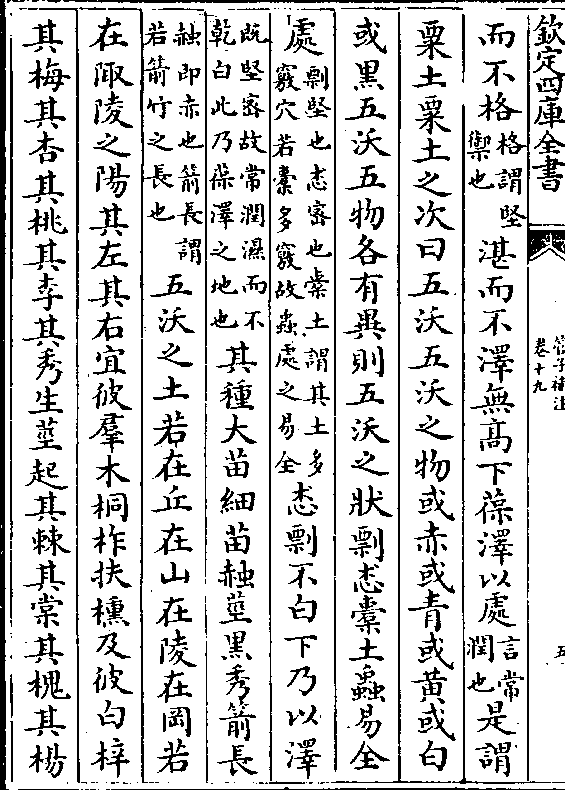 欽定四庫全書
管子補注
卷十九
五
而不格格謂堅禦也湛而不澤無高下葆澤以處言常潤也是謂
粟土粟土之次曰五沃五沃之物或赤或青或黃或白
或黑五沃五物各有異則五沃之狀剽怸橐土蟲易全
處剽堅也怸密也橐土謂其土多竅穴若橐多竅故蟲處之易全怸剽不白下乃以澤
既堅密故常潤濕而不乾白此乃葆澤之地也其種大苗細苗赨莖黑秀箭長
赨即赤也箭長謂若箭竹之長也五沃之土若在丘在山在陵在岡若
在陬陵之陽其左其右宜彼羣木桐柞扶櫄及彼白梓
其梅其杏其桃其李其秀生莖起其棘其棠其槐其楊